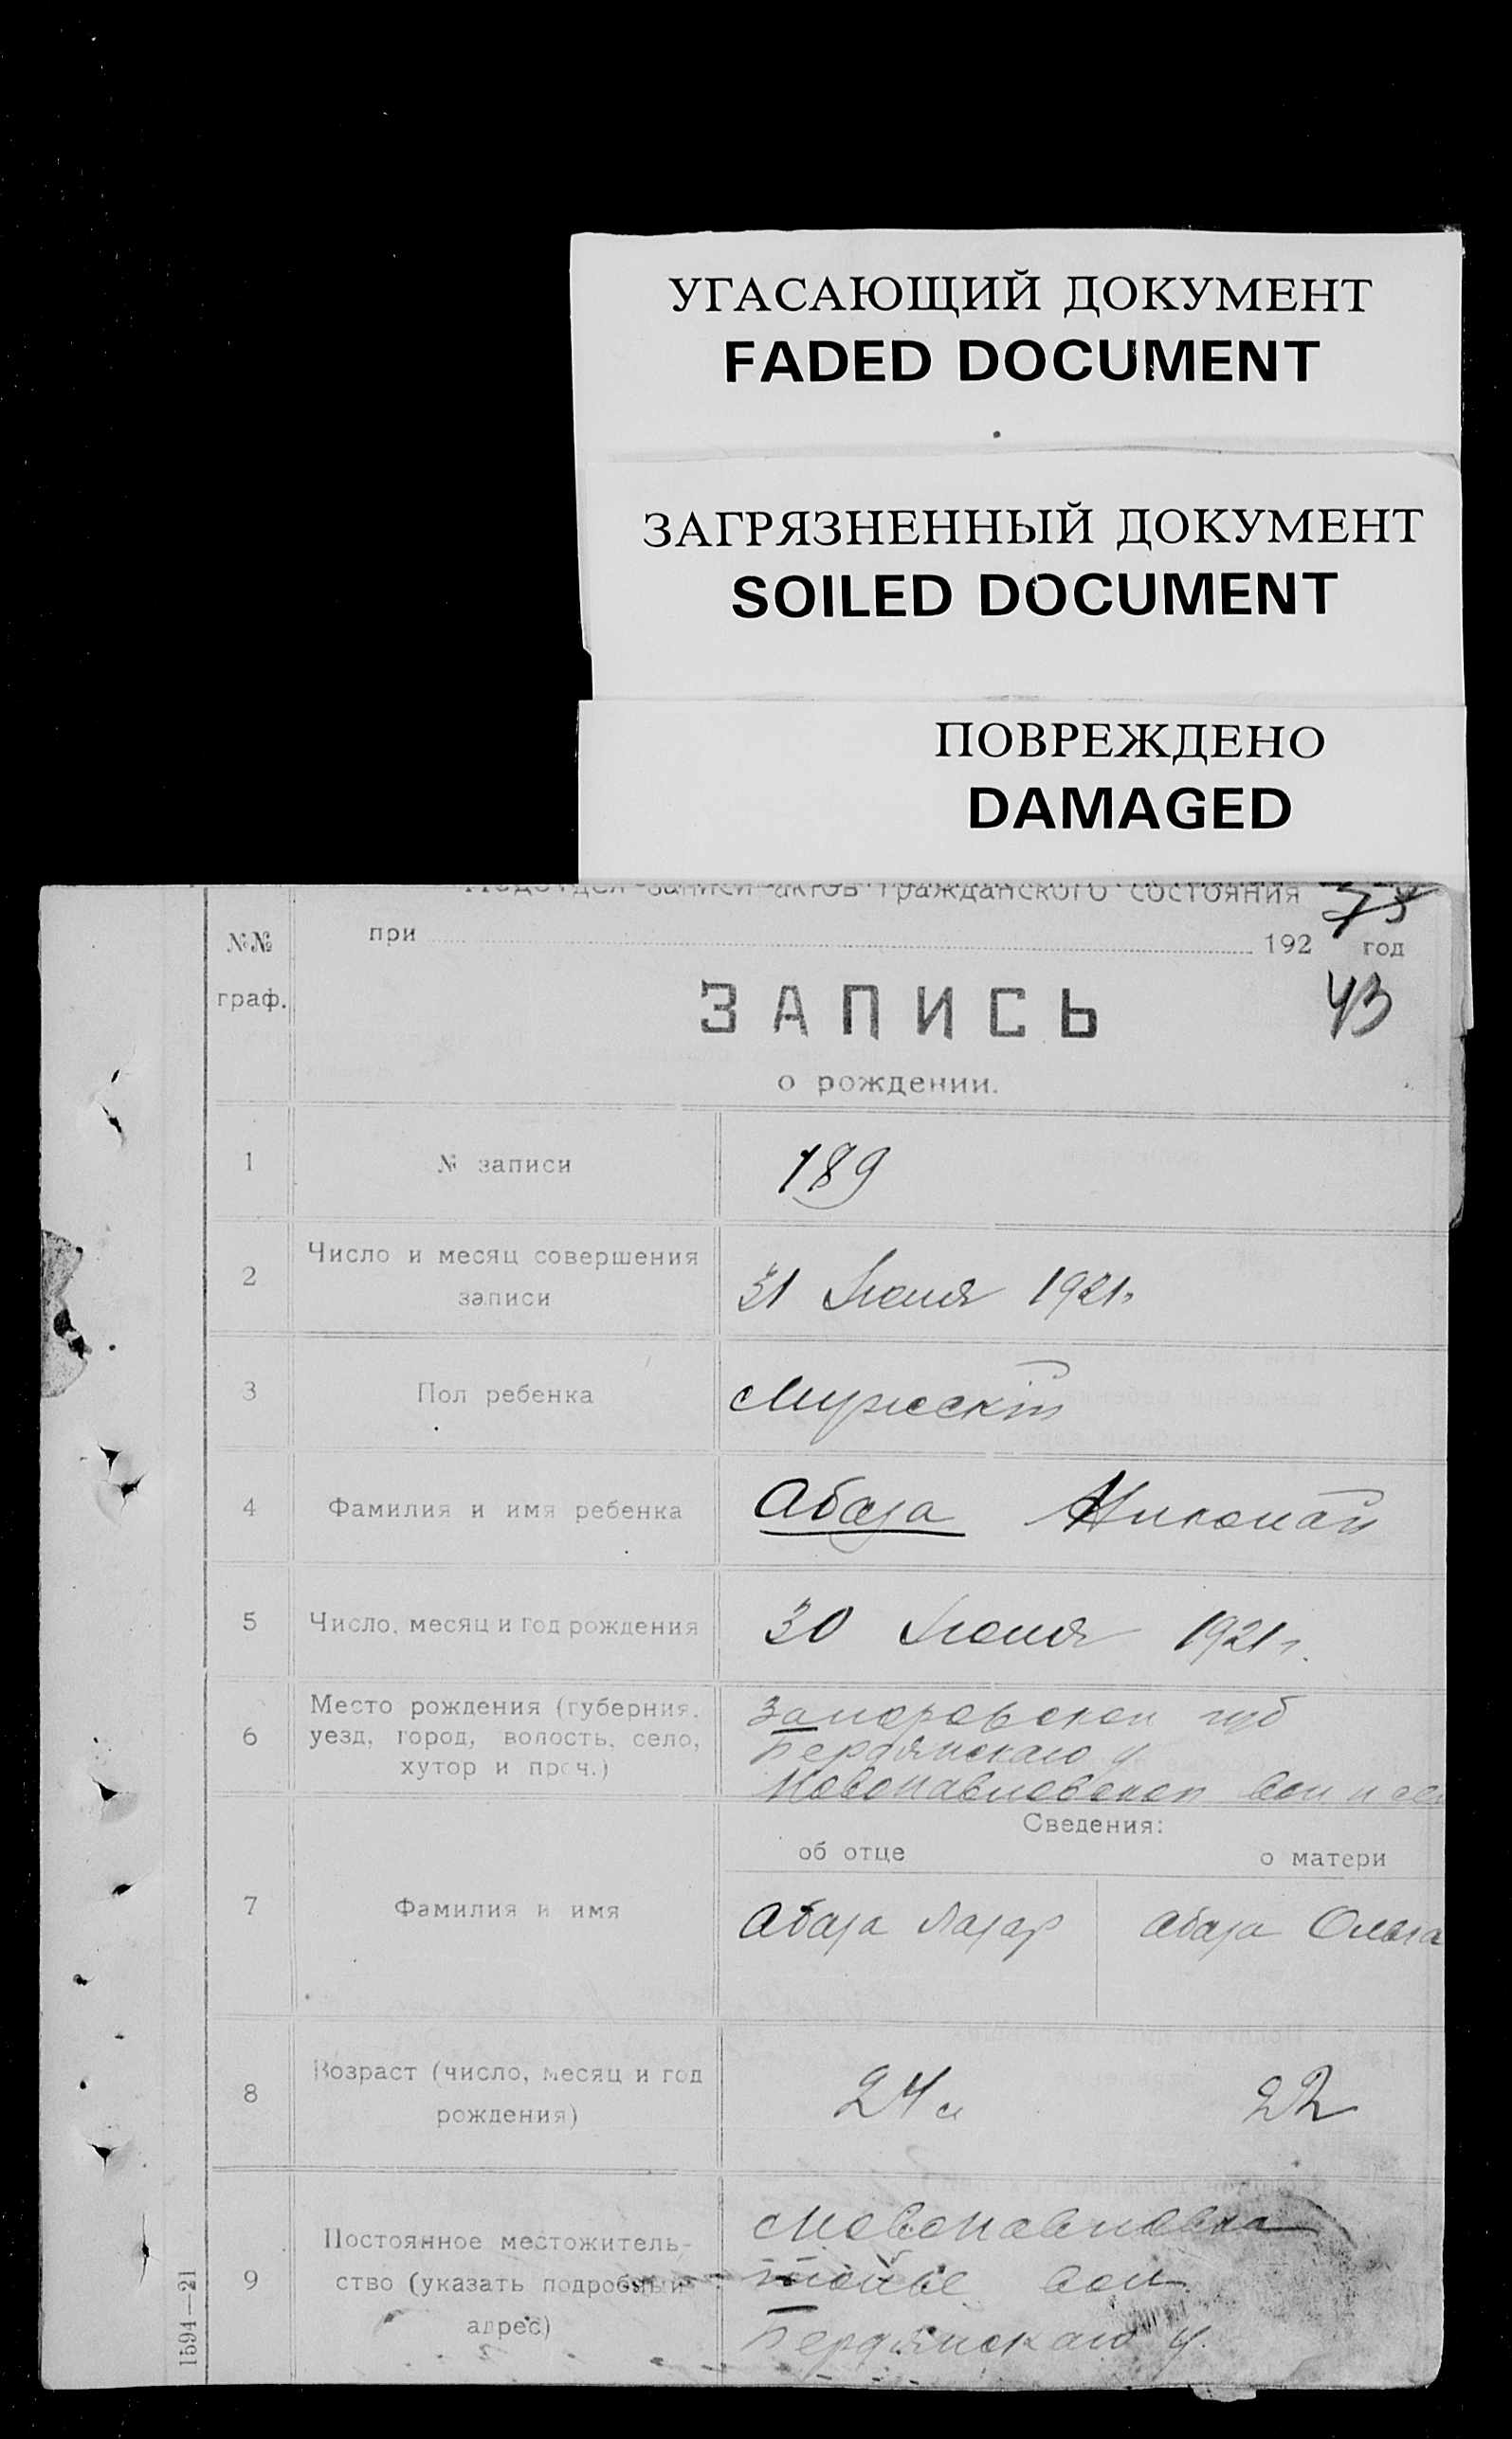 УГАСАЮЩИЙ ДОКУМЕНТ
FADED DOCUMENT
ЗАГРЯЗНЕННЫЙ ДОКУМЕНТ
SOILED DOCUMENT
ПОВРЕЖДЕНО
DAMAGED
записи актов гражданского состояния
№№ граф.
при 192 год
43
ЗАПИСЬ
о рождении.
1 № записи 189
2 Число и месяц совершения записи 31 1921г
3 Пол ребенка Мужскій
4 Фамилия и имя ребенка Абаза Николай
5 Число, месяц и год рождения 30 1921г.
6 Место рождения (губерния, уезд, город, волость, село, хутор и проч.)
губ
Бердянскаго у
Новопавловской вол и
Сведения:
об отце о матери
7 Фамилия и имя Абаза Лазар Абаза Ольга
8 Возраст (число, месяц и год рождения) 24 22
9 Постоянное местожительство (указать подробный адрес)
Новопавловка
вол.
Бердянскаго у.
1594—21